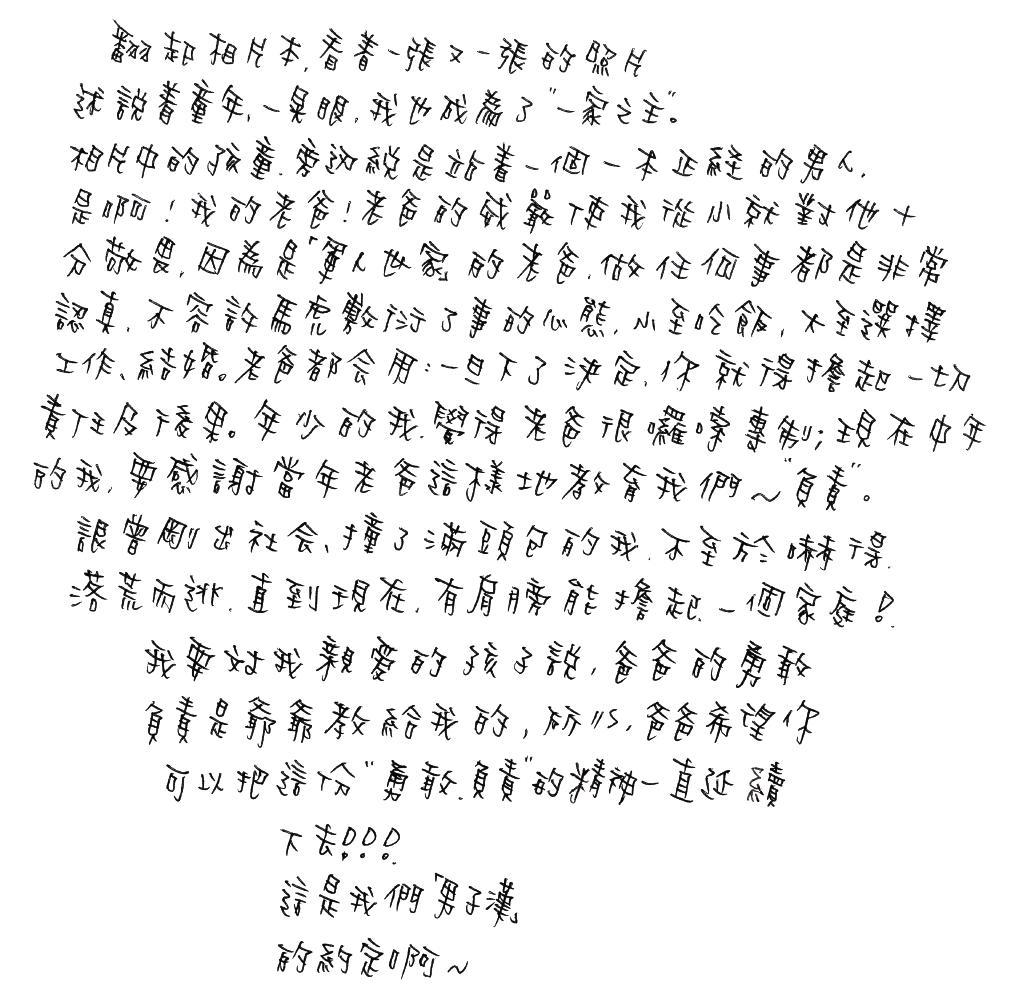 翻起相片本,看着一張又一張的照片
述說着童年,一晃眼,我也成為了"一家之主"。
相片中的孩童,旁邊總是站着一個一本正經的男人,
是啊!我的老爸!老爸的威嚴使我從小就對他十
分敬畏,因為是「軍人世家」的老爸,做任何事都是非常
認真,不容許馬虎敷衍了事的心態,小至吃飯,大至選擇
工作、結婚。老爸都会用:一旦下了決定,你就得擔起一切
責任及後果。年少的我,覺得老爸很囉嗦專制;現在中年
的我,要感謝當年老爸這樣地教育我們~"負責"。
讓曾剛出社会、撞了滿頭包的我,不至於嚇得
落荒而逃,直到現在,有肩膀能擔起一個家庭!
我要对我親愛的孩子說,爸爸的勇敢
負責是爺爺教給我的,所以,爸爸希望你
可以把這份"勇敢、負責"的精神一直延續
下去!!!
這是我們「男子漢」
的約定啊~